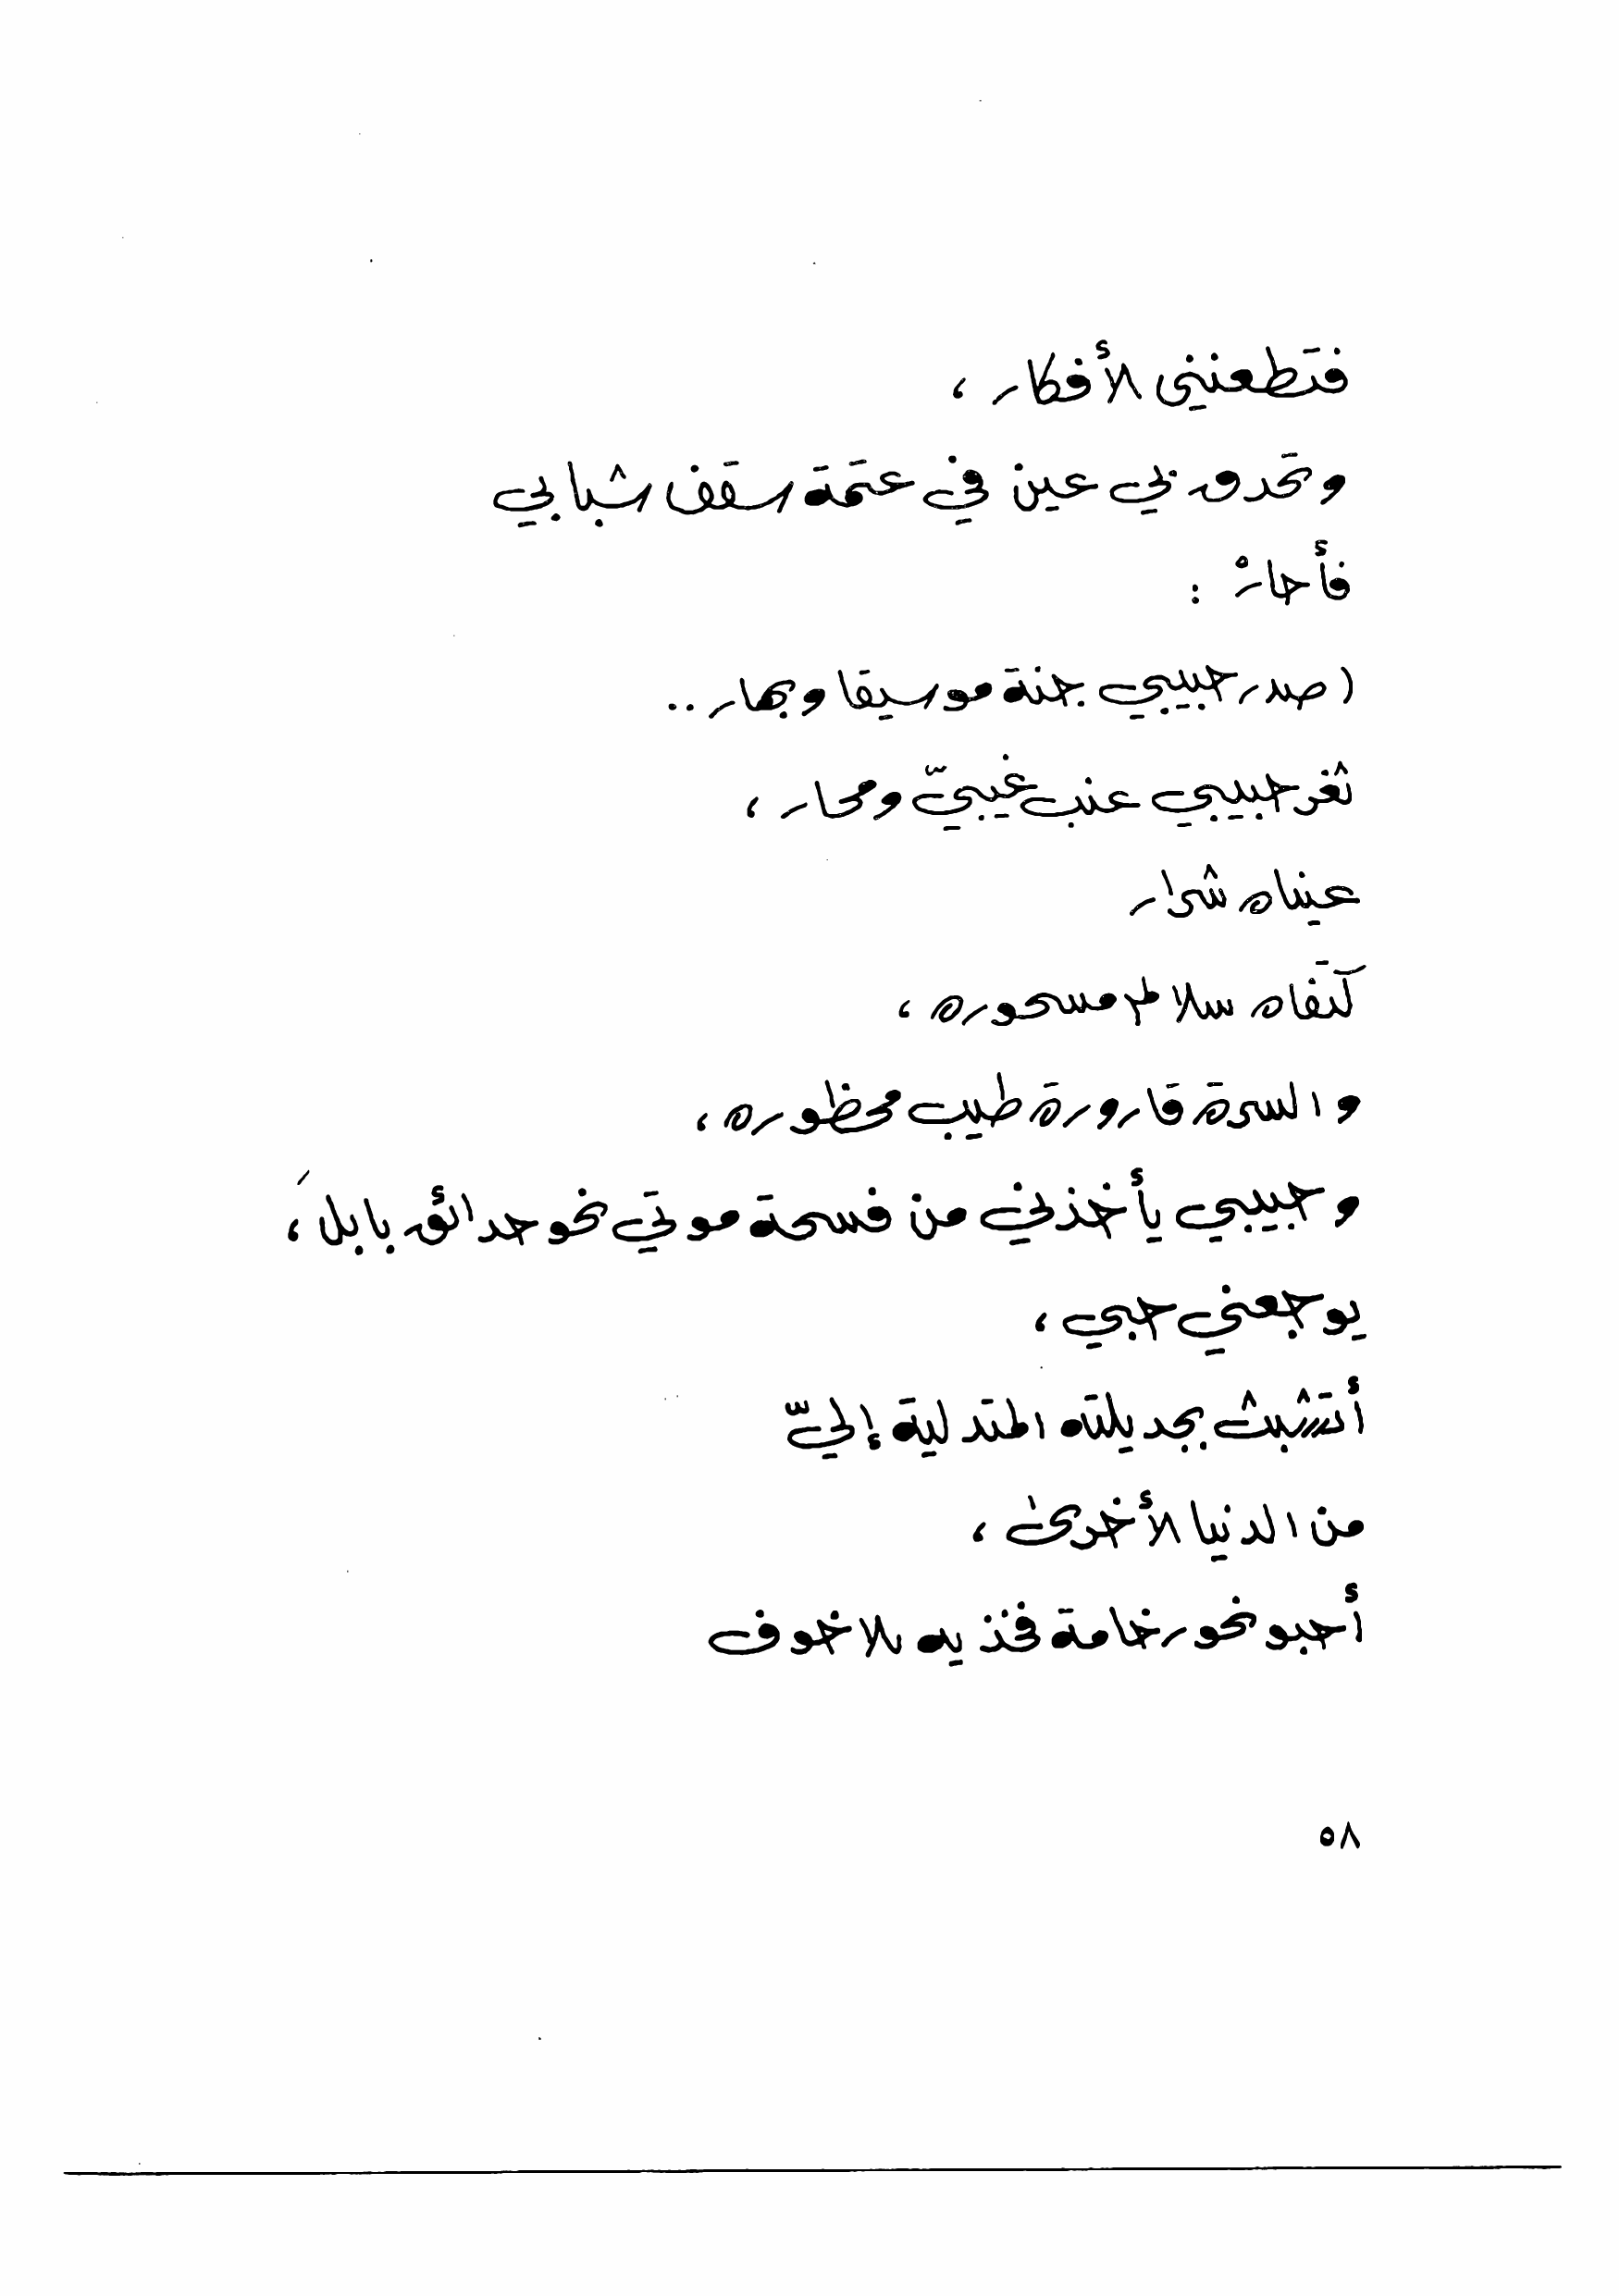 فتطعنني الأفكار ،
وتحدق بي عين في عتمة سقف شبابي
فأحارْ :
( صدر حبيبي جنة موسيقا وبهار ..
ثغر حبيبي عنب غيبيّ ومحار ،
عيناه شرار
كتفاه سلالم مسحوره ،
والسرة قارورة طيب محظوره ،
وحبيبي يأخذني من فسحة موتي نحو حدائق بابلَ ،
يوجعني حبي ،
أتشبث بجديلته المتدلية إليّ
من الدنيا الأخرىٰ ،
أحبو نحو رخامة فخذيه بلا خوف
٥٨